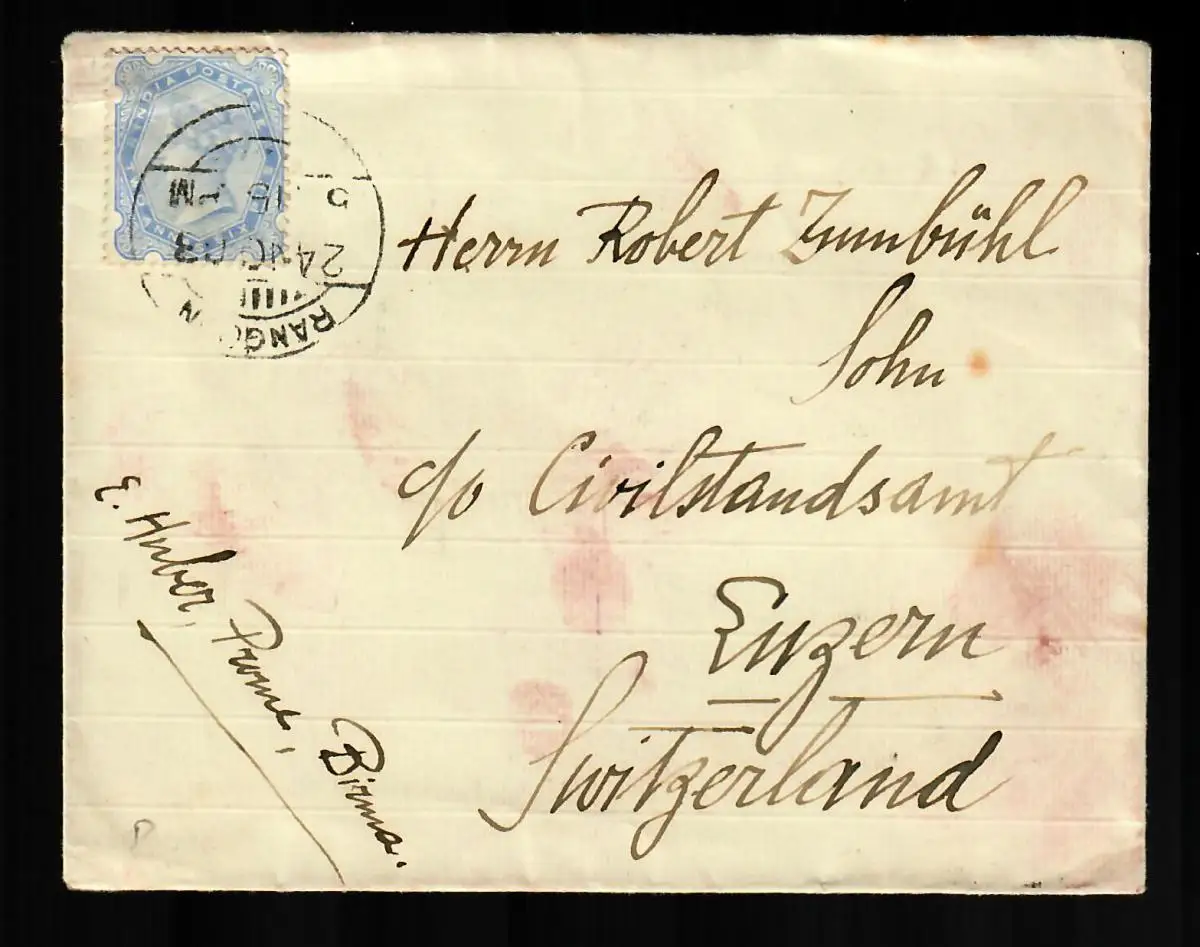 INDIA POSTAGE
Herrn Robert Zumbühl
Sohn
c/o Civilstandsamt
Luzern
Switzerland
E. Huber, Prome, Birma.